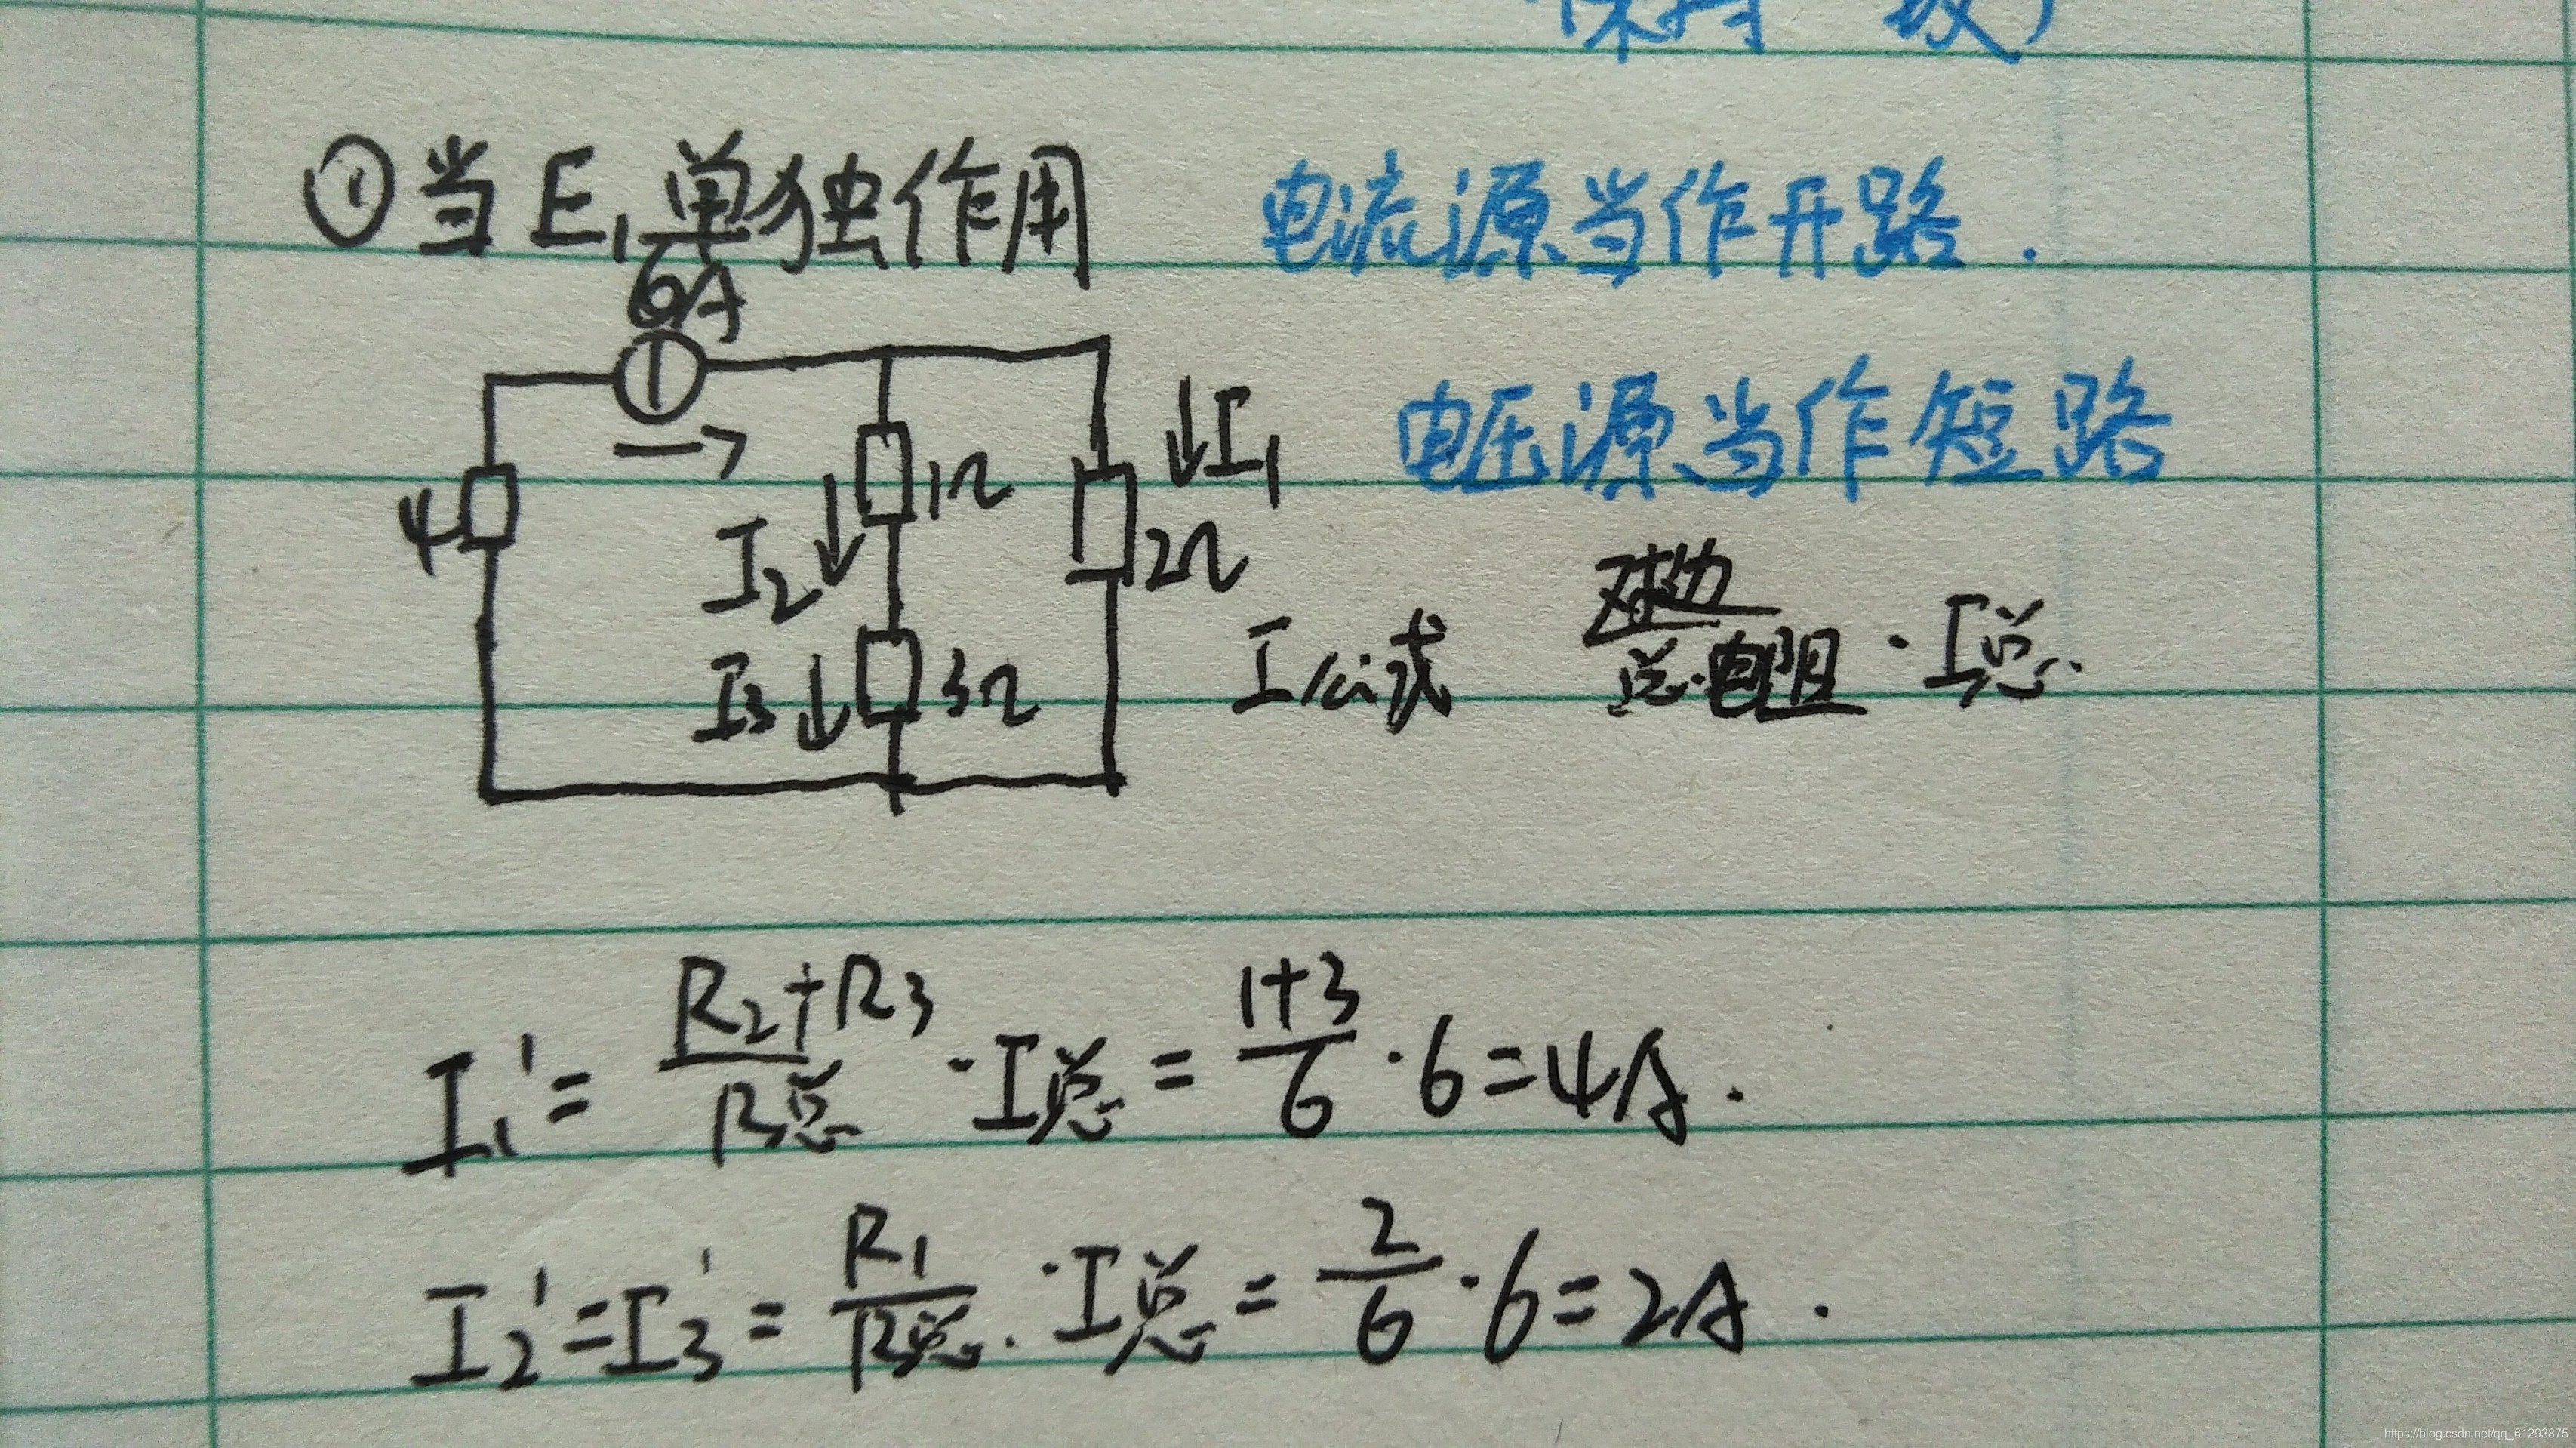 保持一致)
①当E₁单独作用 电流源当作开路.
6A
电压源当作短路
↓I₁
4
1Ω
I₂
2Ω
I公式 对边/总电阻 · I总.
I₃
3Ω
I₁' = (R₂+R₃)/R总 · I总 = (1+3)/6 · 6 = 4A.
I₂' = I₃' = R₁/R总 · I总 = 2/6 · 6 = 2A.
https://blog.csdn.net/qq_61293875